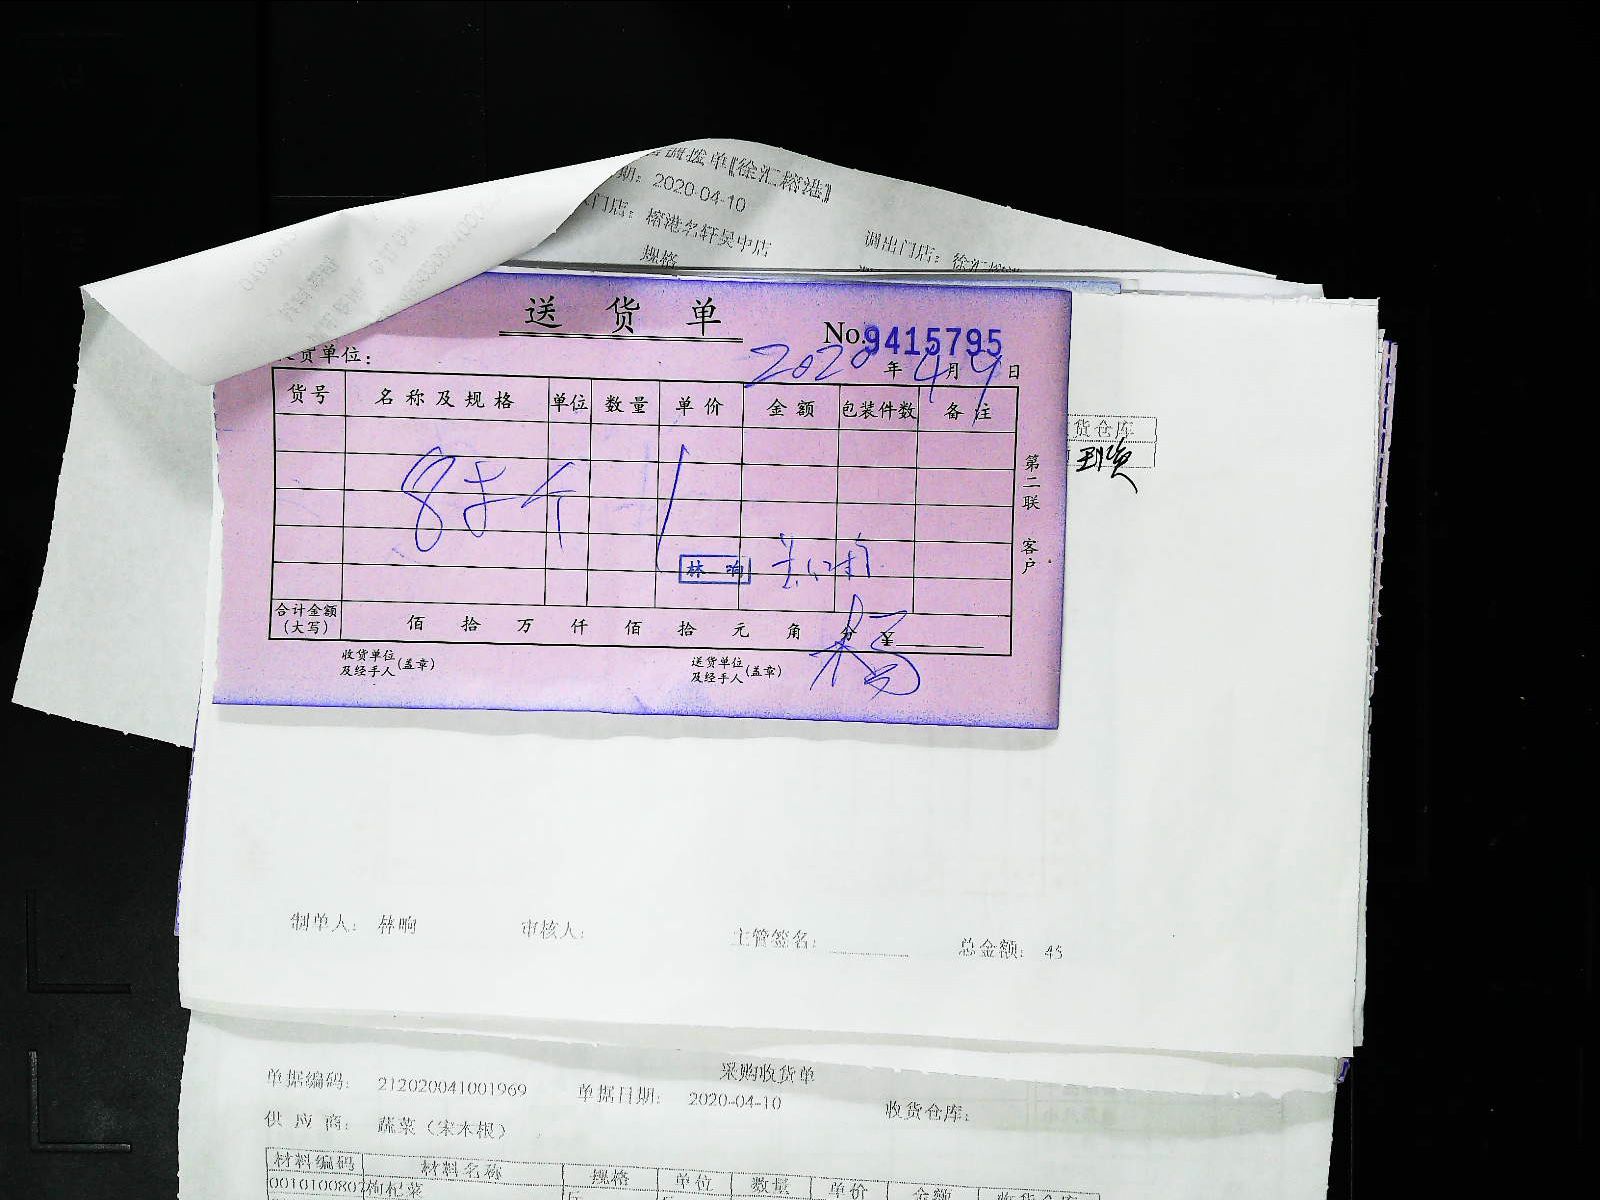 调拨单【徐汇榕港】
期： 2020-04-10
门店： 榕港名轩吴中店 调出门店： 徐汇榕港
规格
送 货 单
No.9415795
货单位：
2020 年 4 月 9 日
货号 名称及规格 单位 数量 单价 金额 包装件数 备注
货仓库
到货
8 个 1
第二联 客户
林 响
合计金额（大写） 佰 拾 万 仟 佰 拾 元 角 分 ¥
杨
收货单位及经手人（盖章） 送货单位及经手人（盖章）
制单人： 林响 审核人： 主管签名： 总金额： 45
采购收货单
单据编码： 212020041001969 单据日期： 2020-04-10 收货仓库：
供 应 商： 蔬菜（宋本根）
材料编码 材料名称 规格 单位 数量 单价 金额 收货仓库
0010100807 枸杞菜 斤 斤